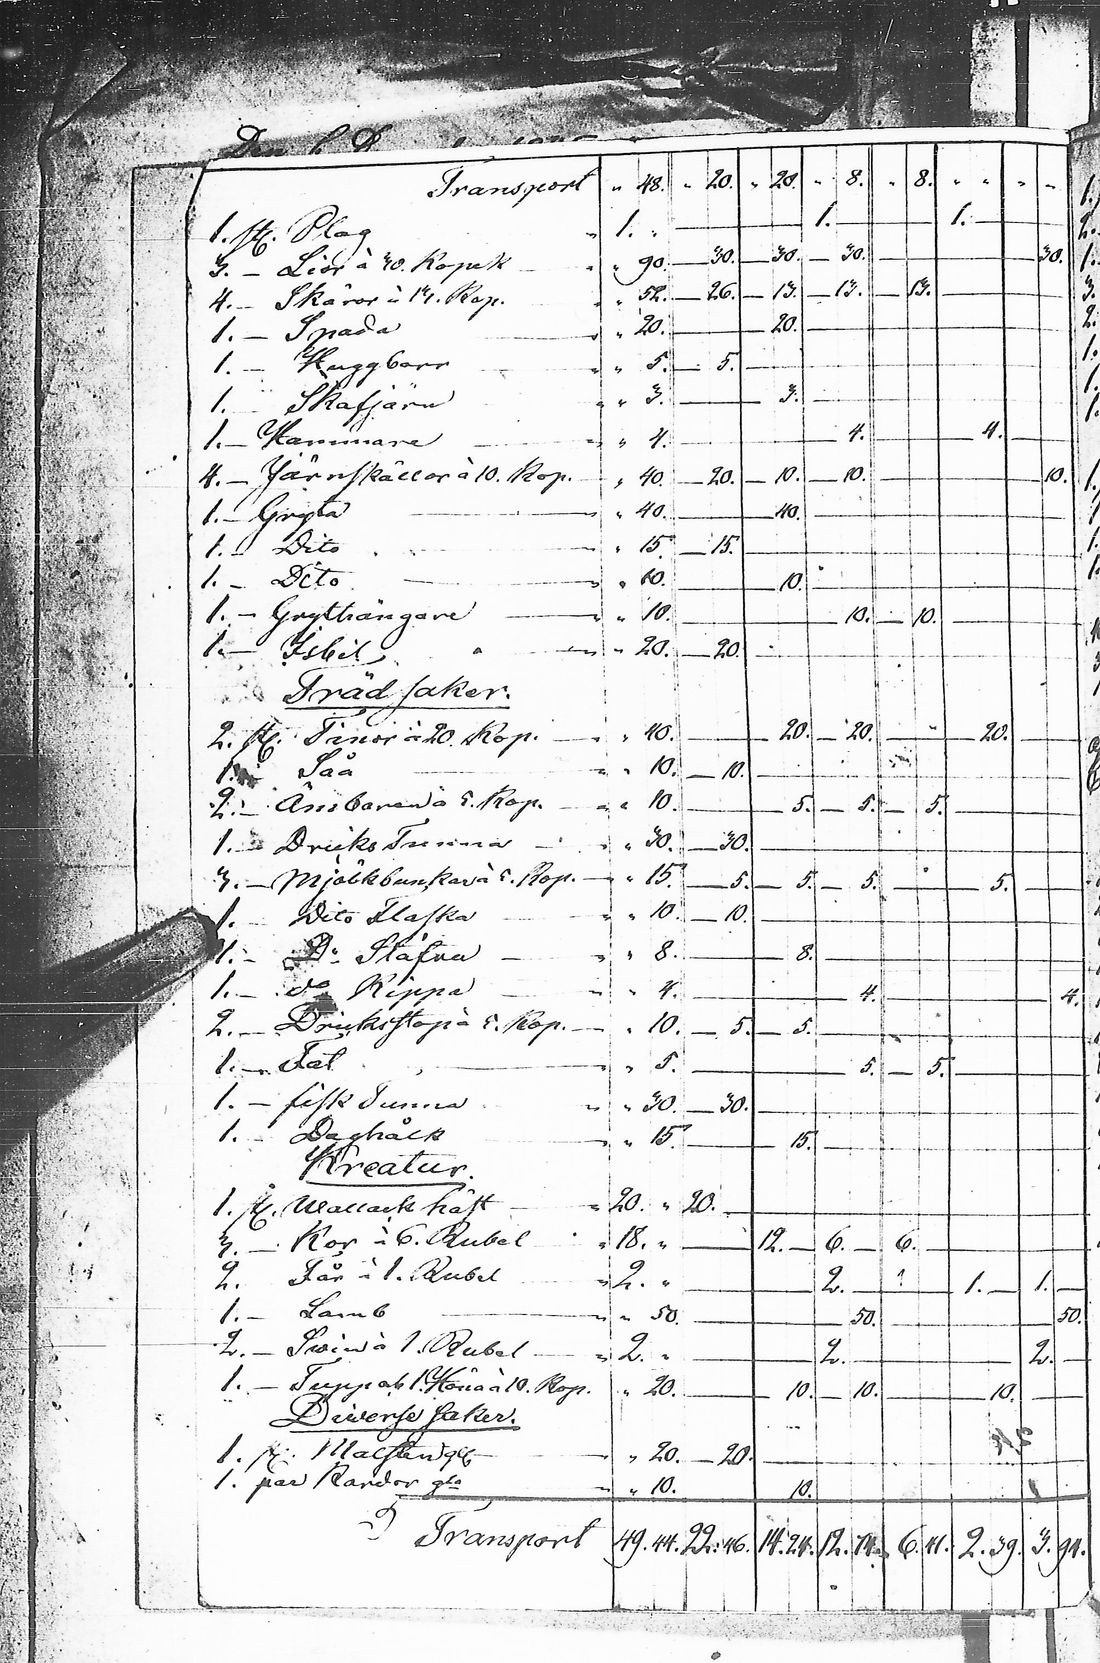 Transport „ 48. „ 20. „ 20. „ 8. „ 8. „ „ „ „
1. st. Plog „ 1. „ 1. 1.
3. – Liar à 30. Kopek „ „ 90. 30. 30. 30. 30.
4. – Skäror à 13. Kop. „ 52. 26. 13. 13. 13.
1. – Spada „ „ 20. 20.
1. – Huggborr „ „ 5. 5.
1. Skafjärn „ „ 3. 3.
1. – Hammare „ „ 4. 4. 4.
4. – Järnskållor à 10. Kop. „ 40. 20. 10. 10. 10.
1. – Gryta „ 40. 40.
1. – Dito „ 15. 15.
1. – Dito „ „ 10. 10.
1. – Grythängare „ „ 10. 10. 10.
1. – Isbil „ „ 20. 20.
Träd saker.
2. st. Tinor à 20. Kop. „ „ 40. 20. 20. „ 20.
1. – Så̊a „ „ 10. 10.
2. – Ämbaren à 5. Kop. „ „ 10. 5. 5. 5.
1. – Dricks Tunna „ 30. 30.
3. – Mjölkbunkar à 5. Kop. „ 15. 5. 5. 5. 5.
1. – Dito Flaska „ „ 10. 10.
1. – D:o Stäfva „ „ 8. 8.
1. – d:o Kippa „ „ 4. 4. 4.
2. – Dricksstop à 5. Kop. „ 10. 5. 5.
1. – Fat „ 5. 5. 5.
1. – fisk Tunna „ „ 30. 30.
1. – Deghålk „ „ 15. 15.
Kreatur.
1. st. Wallack häst „ 20. „ 20.
3. – Kor à 6. Rubel „ 18. „ 12. 6. 6.
2. Får à 1. Rubel „ 2. „ 2. 1. 1.
1. – Lamb „ „ 50. 50. 50.
2. – Swin à 1. Rubel „ 2. „ 2. 2.
1. – Tupp och 1. Höna à 10. Kop. „ 20. 10. 10. 10.
Diverse saker.
1. st. Malsten gl. „ 20. 20.
1. par Kardor gla „ „ 10. 10.
Transport 49. 44. 22. 46. 14. 24. 12. 14. 6. 41. 2. 39. 3. 94.